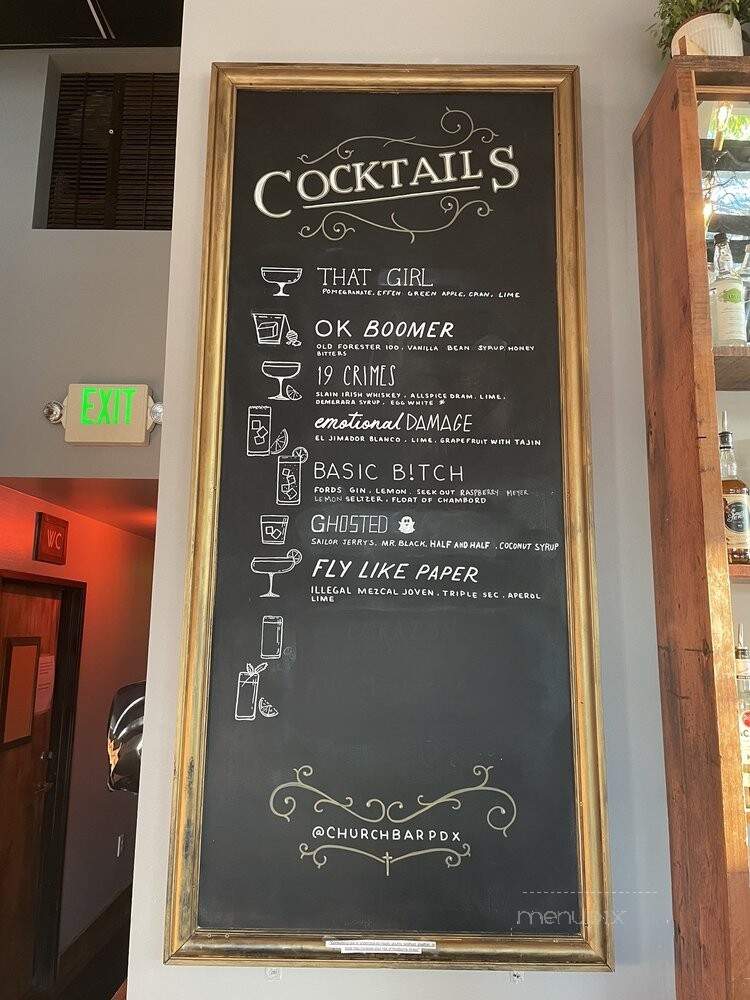 COCKTAILS
THAT GIRL
POMEGRANATE, EFFEN GREEN APPLE, CRAN, LIME
OK BOOMER
OLD FORESTER 100, VANILLA BEAN SYRUP, HONEY
BITTERS
19 CRIMES
SLAIN IRISH WHISKEY, ALLSPICE DRAM, LIME,
DEMERARA SYRUP, EGG WHITE *
emotional DAMAGE
EL JIMADOR BLANCO, LIME, GRAPEFRUIT WITH TAJIN
BASIC B!TCH
FORDS GIN, LEMON, SEEK OUT RASPBERRY MEYER
LEMON SELTZER, FLOAT OF CHAMBORD
GHOSTED
SAILOR JERRY'S, MR. BLACK, HALF AND HALF, COCONUT SYRUP
FLY LIKE PAPER
ILLEGAL MEZCAL JOVEN, TRIPLE SEC, APEROL
LIME
@CHURCHBARPDX
EXIT
WC
menupix